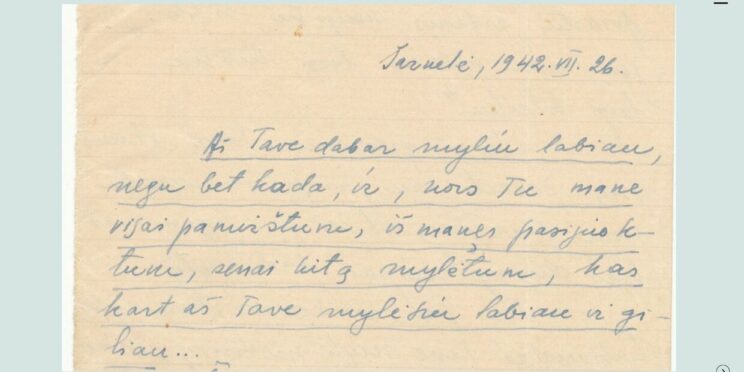 Sarnelė, 1942.VII.26.
Aš Tave dabar myliu labiau,
negu bet kada, ir, nors Tu mane
visai pamirštum, iš manęs pasijuok-
tum, senai kitą mylėtum, kas
kart aš Tave mylėsiu labiau ir gi-
liau...